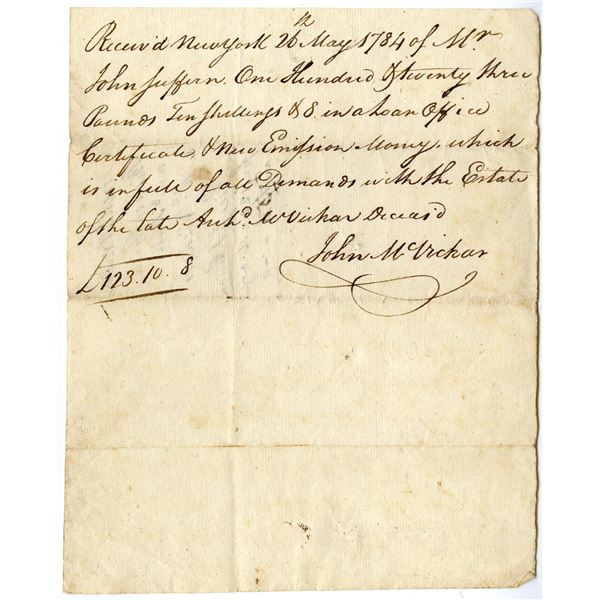 Receiv'd New York 26th May 1784 of Mr
John Suffern One Hundred & twenty three
Pounds Ten Shillings & 8 in a Loan Office
Certificate & New Emission Money, which
is in full of all Demands with the Estate
of the late Archd. McVickar Deceas'd
John McVickar
£123.10.8